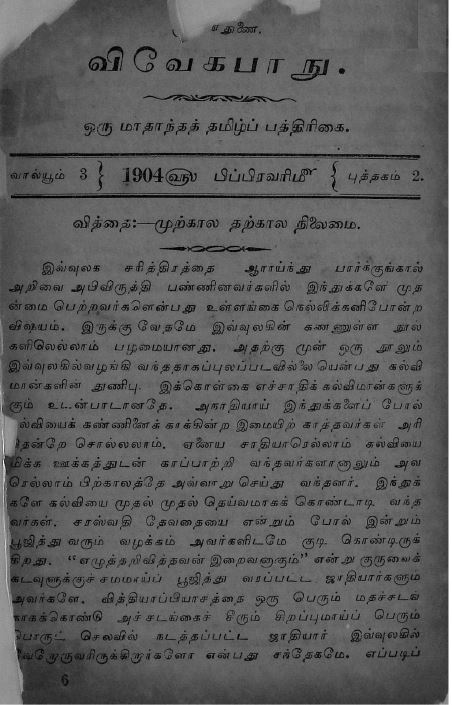 துணை.
விவேகபாநு.
ஒரு மாதாந்தத் தமிழ்ப் பத்திரிகை.
வால்யூம் 3 } 1904௵ பிப்பிரவரி௴ { புத்தகம் 2.
வித்தை:—முற்கால தற்கால நிலைமை.
இவ்வுலக சரித்திரத்தை ஆராய்ந்து பார்க்குங்கால்
அறிவை அபிவிருத்தி பண்ணினவர்களில் இந்துக்களே முத
ன்மை பெற்றவர்களென்பது உள்ளங்கை நெல்லிக்கனிபோன்ற
விஷயம். இருக்கு வேதமே இவ்வுலகின் கணணுள்ள நூல
களிலெல்லாம் பழமையானது. அதற்கு முன் ஒரு நூலும்
இவ்வுலகில்வழங்கி வந்ததாகப்புலப்படவில்லை யென்பது கல்வி
மான்களின துணிபு. இக்கொள்கை எச்சாதிக் கல்விமான்களுக்
கும் உடன்பாடானதே. அநாதியாய் இந்துக்களைப் போல்
ல்வியைக் கண்ணினைக் காக்கின்ற இமையிற் காத்தவர்கள் அரி
தென்றே சொல்லலாம். ஏனைய சாதியாரெல்லாம் கல்வியை
மிக்க ஊக்கத்துடன் காப்பாற்றி வந்தவர்களானாலும் அவ
ரெல்லாம் பிற்காலத்தே அவ்வாறு செய்து வந்தனர். இந்துக்
களே கல்வியை முதல் முதல் தெய்வமாகக் கொண்டாடி வந்த
வர்கள். சரஸ்வதி தேவதையை என்றும் போல் இன்றும்
பூஜித்து வரும் வழக்கம் அவர்களிடமே குடி கொண்டிருக்
கிறது. “எழுத்தறிவித்தவன் இறைவனாகும்” என்று குருவைக்
கடவுளுக்குச் சமமாய்ப் பூஜித்து வரப்பட்ட ஜாதியார்களும
அவர்களே. வித்தியாப்பியாசத்தை ஒரு பெரும் மதச்சடங
காகக்கொண்டு அச்சடங்கைச் சீரும் சிறப்புமாய்ப் பெரும்
பொருட் செலவில் நடத்தப்பட்ட ஜாதியார் இவ்வுலகில்
வேறொருவரிருக்கிறார்களோ என்பது சந்தேகமே. எப்படிப்
6